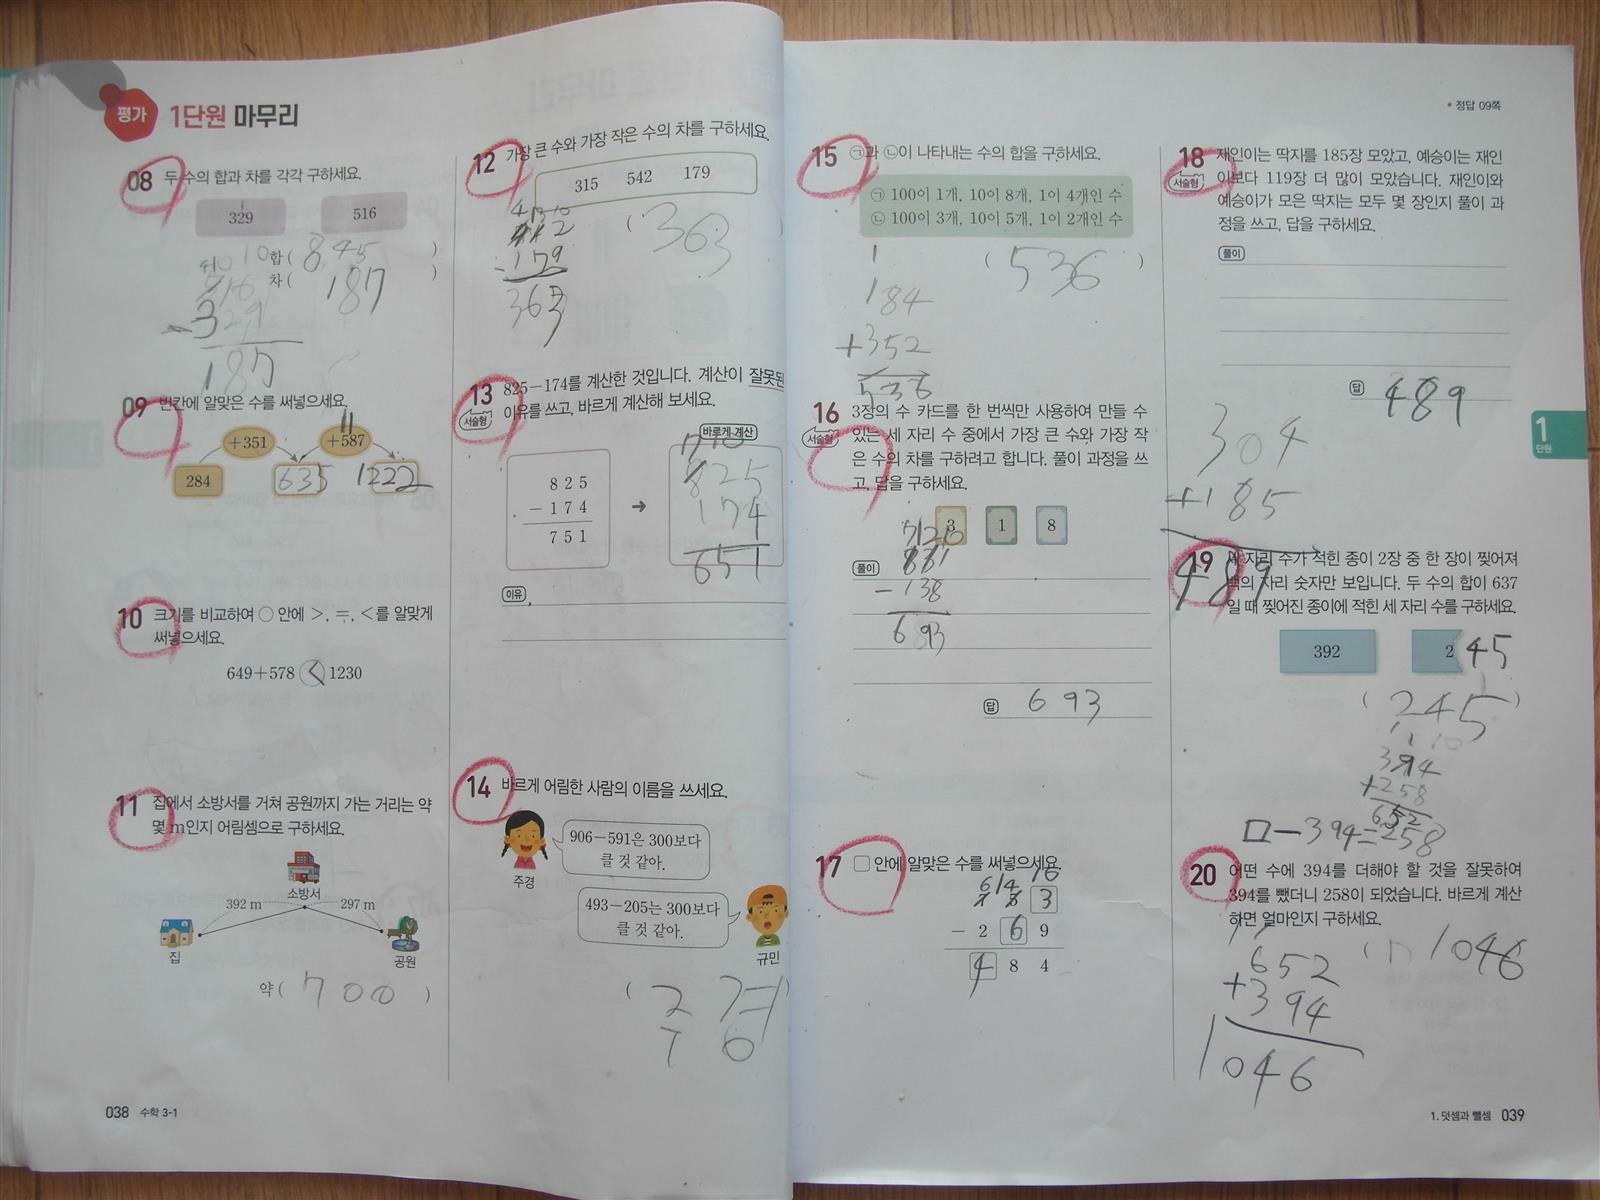 평가
1단원 마무리
08 두 수의 합과 차를 각각 구하세요.
1
329 516
합( 845 )
차( 187 )
4 10 10
516
- 329
187
09 빈칸에 알맞은 수를 써넣으세요.
11
+351 +587
284 635 1222
10 크기를 비교하여 ○ 안에 >, =, <를 알맞게
써넣으세요.
649+578 < 1230
11 집에서 소방서를 거쳐 공원까지 가는 거리는 약
몇 m인지 어림셈으로 구하세요.
소방서
392 m 297 m
집 공원
약( 700 )
038 수학 3-1
12 가장 큰 수와 가장 작은 수의 차를 구하세요.
315 542 179
( 363 )
4 13 10
542
- 179
363
13 825-174를 계산한 것입니다. 계산이 잘못된
서술형 이유를 쓰고, 바르게 계산해 보세요.
바르게 계산
7 10
8 2 5 825
- 1 7 4 → 174
7 5 1 651
이유
14 바르게 어림한 사람의 이름을 쓰세요.
906-591은 300보다
클 것 같아.
주경
493-205는 300보다
클 것 같아.
규민
( 주경 )
* 정답 09쪽
15 ㉠과 ㉡이 나타내는 수의 합을 구하세요.
㉠ 100이 1개, 10이 8개, 1이 4개인 수
㉡ 100이 3개, 10이 5개, 1이 2개인 수
( 536 )
1
184
+352
536
16 3장의 수 카드를 한 번씩만 사용하여 만들 수
서술형 있는 세 자리 수 중에서 가장 큰 수와 가장 작
은 수의 차를 구하려고 합니다. 풀이 과정을 쓰
고, 답을 구하세요.
3 1 8
7 12 10
831
풀이
- 138
693
답 693
17 □ 안에 알맞은 수를 써넣으세요.
6 14 10
7 5 3
- 2 6 9
4 8 4
18 재인이는 딱지를 185장 모았고, 예승이는 재인
서술형 이보다 119장 더 많이 모았습니다. 재인이와
예승이가 모은 딱지는 모두 몇 장인지 풀이 과
정을 쓰고, 답을 구하세요.
풀이
답 489
304
+185
489
1
단원
19 세 자리 수가 적힌 종이 2장 중 한 장이 찢어져
백의 자리 숫자만 보입니다. 두 수의 합이 637
일 때 찢어진 종이에 적힌 세 자리 수를 구하세요.
392 2 45
( 245 )
394
+258
652
□-394=258
20 어떤 수에 394를 더해야 할 것을 잘못하여
394를 뺐더니 258이 되었습니다. 바르게 계산
하면 얼마인지 구하세요.
( 1046
652
+394
1046
1. 덧셈과 뺄셈 039